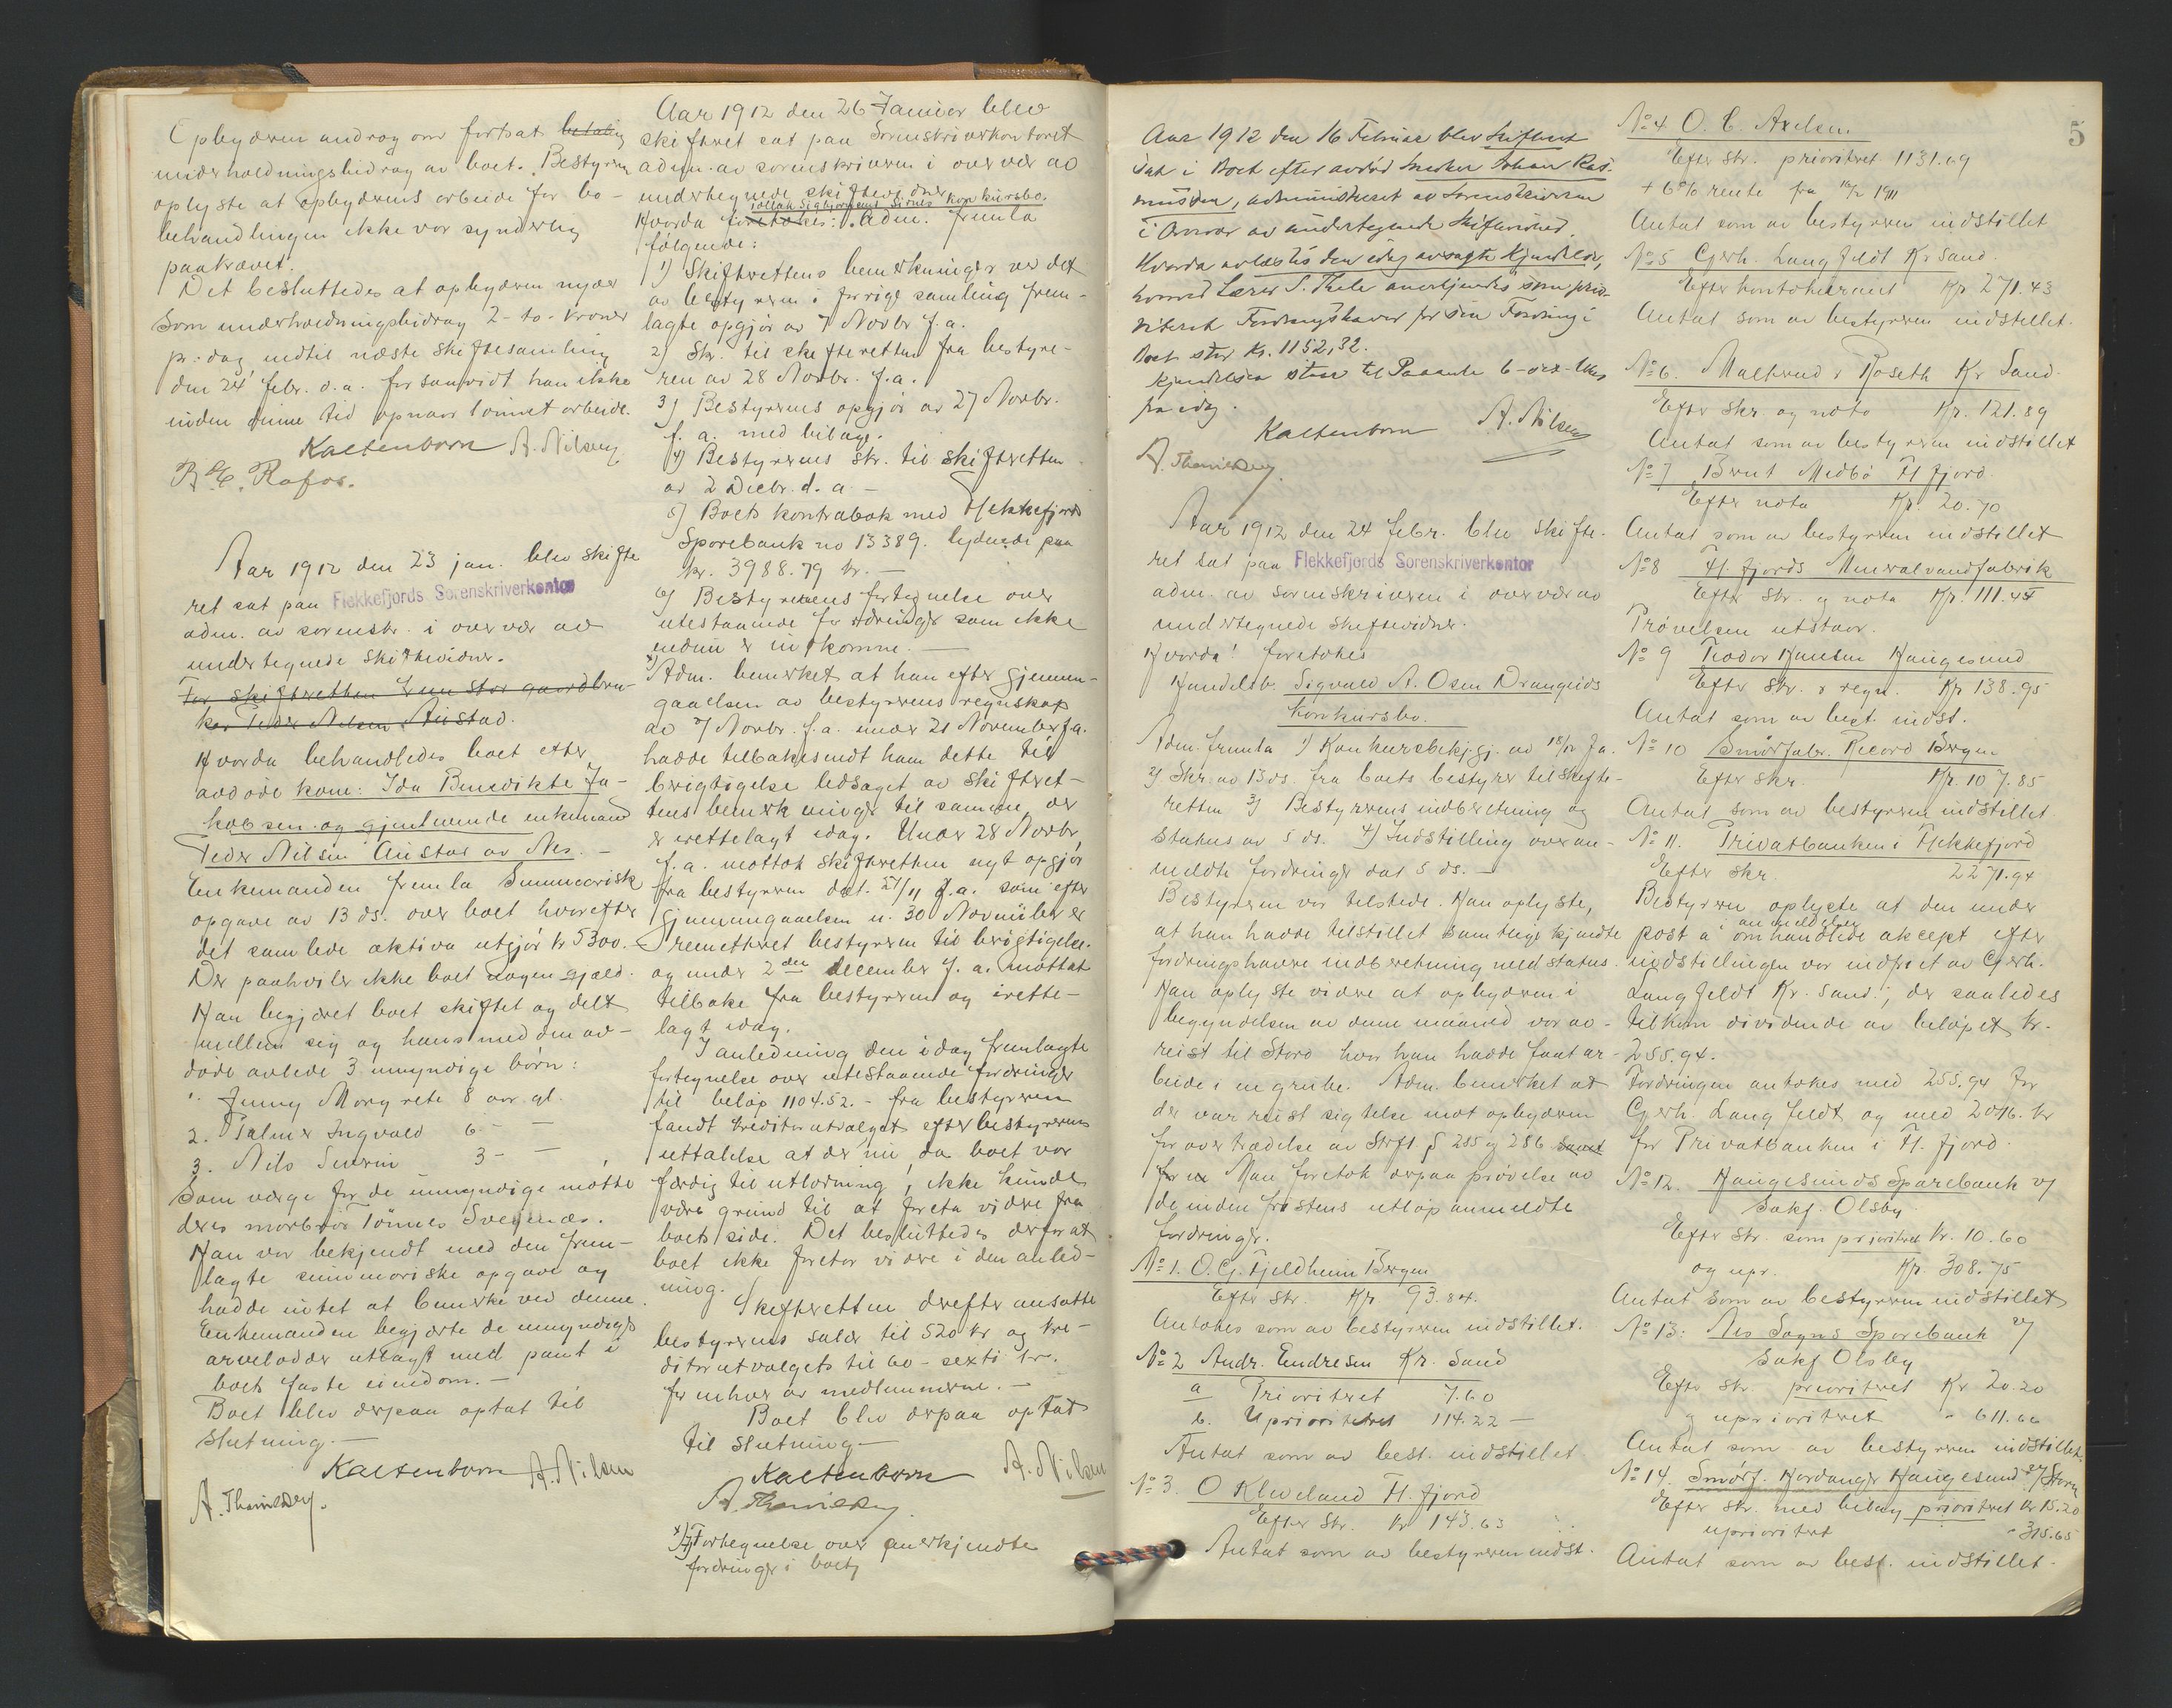 Opbyderen androg om fortsat betaling
underholdningsbidrag av boet. Bestyreren
oplyste at opbyderens arbeide for bo-
behandlingen ikke var synderlig
paakrævet.
Det besluttedes at opbyderen nyder
som underholdningsbidrag 2 - to - kroner
pr. dag indtil næste skiftesamling
den 24 febr. d.a. forsaavidt han ikke
inden denne tid opnaar lønnet arbeide.
Kaltenborn A. Nilsen
Aar 1912 den 23 jan. blev skifte
ret sat paa Flekkefjords Sorenskriverkontor
adm. av sorenskr. i overvær av
undertegnede skiftevidner.
For skifteretten
ker Peder Nilsen Austad.
Hvorda behandledes boet efter
avdøde kone: Ida Benedikte Ja-
kobsen og gjenlevende enkemand
Peder Nilsen Austad av Nes. -
Enkemanden fremla summarisk
opgave av 13 ds. over boet hvorefter
det samlede aktiva utgjør kr 5300.-
Der paahviler ikke boet nogen gjæld.
Han begjæret boet skiftet og delt
mellem sig og hans med den av-
døde avlede 3 umyndige børn:
1. Jenny Margrete 8 aar gl.
2. Palmer Ingvald 6 - -
3. Nils Severin 3 - -
Som værge for de umyndige møtte
deres morbror Tønnes
Han var bekjendt med den frem-
lagte summariske opgave og
hadde intet at bemerke ved denne.
Enkemanden begjærte de umyndiges
arvelodder utlagt med pant i
boets faste eiendom. -
Boet blev derpaa optat til
slutning. -
Kaltenborn A. Nilsen
Aar 1912 den 26 Januar blev
skifteret sat paa Sorenskriverkontoret
adm. av sorenskriveren i overvær av
undertegnede skiftevidner
Tollak Sigbjørnsens Sirnes konkursbo.
Hvorda foretokes: Adm. fremla
følgende:
1) Skifterettens bemerkninger ved det
av bestyreren i forrige samling frem-
lagte opgjør av 7 Novbr f.a.
2) Skr. til skifteretten fra bestyre-
ren av 28 Novbr. f.a.
3) Bestyrerens opgjør av 27 Novbr.
f. a. med bilage.
4) Bestyrerens skr. til skifteretten
av 2 Decbr. d. a -
5) Boets kontrabok med Flekkefjords
Sparebank no 13389. lydende paa
kr. 3988.79 kr. -
6) Bestyrerens fortegnelse over
utestaaende fordringer som ikke
endnu er indkomne. -
x) Adm. bemerket at han efter gjennem-
gaaelsen av bestyrerens regnskap
av 7 Novbr. f.a. under 21 November f.a.
hadde tilbakesendt ham dette til
berigtigelse ledsaget av skifteret-
tens bemerkninger til samme, der
er irettelagt idag. Under 28 Novbr
f.a. mottok skifteretten nyt opgjør
fra bestyreren dat. 27/11 f.a. som efter
gjennemgaaelsen u. 30 November er
remitteret bestyreren til berigtigelse.
og under 2den december f. a. mottat
tilbake fra bestyreren og irette-
lagt idag.
I anledning den idag fremlagte
fortegnelse over utestaaende fordringer
til beløp 1104.52. - fra bestyreren
fandt kreditorutvalget efter bestyrerens
uttalelse at der nu, da boet var
færdig til utlodning, ikke kunde
være grund til at foreta videre fra
boets side. Det besluttedes derfor at
boet ikke foretar videre i den anled-
ning.
Skifteretten derefter ansatte
bestyrerens salær til 520 kr og kre-
ditorutvalgets til 60 - sexti kr.
for enhver av medlemmerne. -
Boet blev derpaa optat
til slutning. -
Kaltenborn A. Nilsen
x) 7) Fortegnelse over anerkjendte
fordringer i boet
5
Aar 1912 den 16 Februar blev Skifteret
sat i Boet efter avdød Snedker Johan Ras-
mussen, administreret av Sorenskriveren
i Overvær av undertegnede Skiftevidner.
Hvorda avlæstes den idag avsagte Kjendelse,
hvorved Lærer S. Thele anerkjendes som prio-
ritert Fordringshaver for sin Fordring i
Boet stor Kr. 1152,32.
Kjendelsen staar til Paaanke 6 - sex - Uker
fra idag.
Kaltenborn A. Nilsen
Aar 1912 den 24 febr. blev skifte-
ret sat paa Flekkefjords Sorenskriverkontor
adm. av sorenskriveren i overvær av
undertegnede skiftevidner.
Hvorda! foretokes
Handelsb. Sigvald A. Osen Drangeids
konkursbo.
Adm. fremla 1) Konkursbekjgj. av 18/12 f.a.
2) Skr. av 13 ds. fra boets bestyrer til skifte-
retten 3) Bestyrerens indberetning og
status av 5 ds. 4) Indstilling over an-
meldte fordringer dat 5 ds. -
Bestyreren var tilstede. Han oplyste,
at han hadde tilstillet samtlige kjendte
fordringshavere indberetning med status.
Han oplyste videre at opbyderen i
begyndelsen av denne maaned var av-
reist til Stord hvor han hadde faat ar-
beide i en grube. Adm. bemerket at
der var reist sigtelse mot opbyderen
for overtrædelse av Strfl. § 285 og 286 samt
for en Man foretok derpaa prøvelse av
de inden fristens utløp anmeldte
fordringer.
No 1. O. G. Fjeldheim Bergen
Efter skr. Kr 93.84.
Antokes som av bestyreren indstillet.
No 2 Andr. Endresen Kr. Sand
a Prioriteret 7.60
b. Uprioriteret 114.22 -
Antat som av best. indstillet
No 3. O Kleveland Fl. fjord
Efter skr. kr 143.63
Antat som av bestyreren indst.
No 4 O. C. Axelsen.
Efter skr. prioriteret 1131.69
+ 6% rente fra 1911
Antat som av bestyreren indstillet
No 5 Gerh. Langfeldt Kr Sand.
Efter kontokurant Kr 271.43
Antat som av bestyreren indstillet.
No 6. Malterud & Roseth Kr Sand.
Efter skr. og nota Kr. 121.89
Antat som av bestyreren indstillet
No 7 Brut Medbø Fl fjord.
Efter nota Kr. 20.70
Antat som av bestyreren indstillet
No 8 Fl. fjords Mineralvandfabrik
Efter skr. og nota Kr. 111.45
Prøvelsen utstaar.
No 9 Teodor Hansen Haugesund
Efter skr. & regn. Kr 138.95
Antat som av best. indst.
No 10 Smørfabr. Record Bergen
Efter skr. Kr. 107.85
Antat som av bestyreren indstillet
No 11. Privatbanken i Flekkefjord
Efter skr. 2271.94
Bestyreren oplyste at den under
anmeldelsen
post a omhandlede aksept efter
indstillingen var indfriet av Gerh.
Langfeldt Kr. Sand.; der saaledes
tilkom dividende av beløpet kr.
255.94.
Fordringen antokes med 255.94 for
Gerh. Langfeldt og med 2016. kr
for Privatbanken i Fl. fjord.
No 12. Haugesunds Sparebank v/
Sakf. Olsby
Efter skr. som prioriteret kr. 10.60
og upr. Kr. 308.75
Antat som av bestyreren indstillet
No 13: Nes Sogns Sparebank v/
Sakf Olsby
Efter skr prioriteret Kr 20.20
og uprioriteret " 611.66
Antat som av bestyreren indstillet.
No 14. Smørf. Hardanger Haugesund
Efter skr. med bilag prioriteret kr 15.20
uprioritert " 315.65
Antat som av best. indstillet.